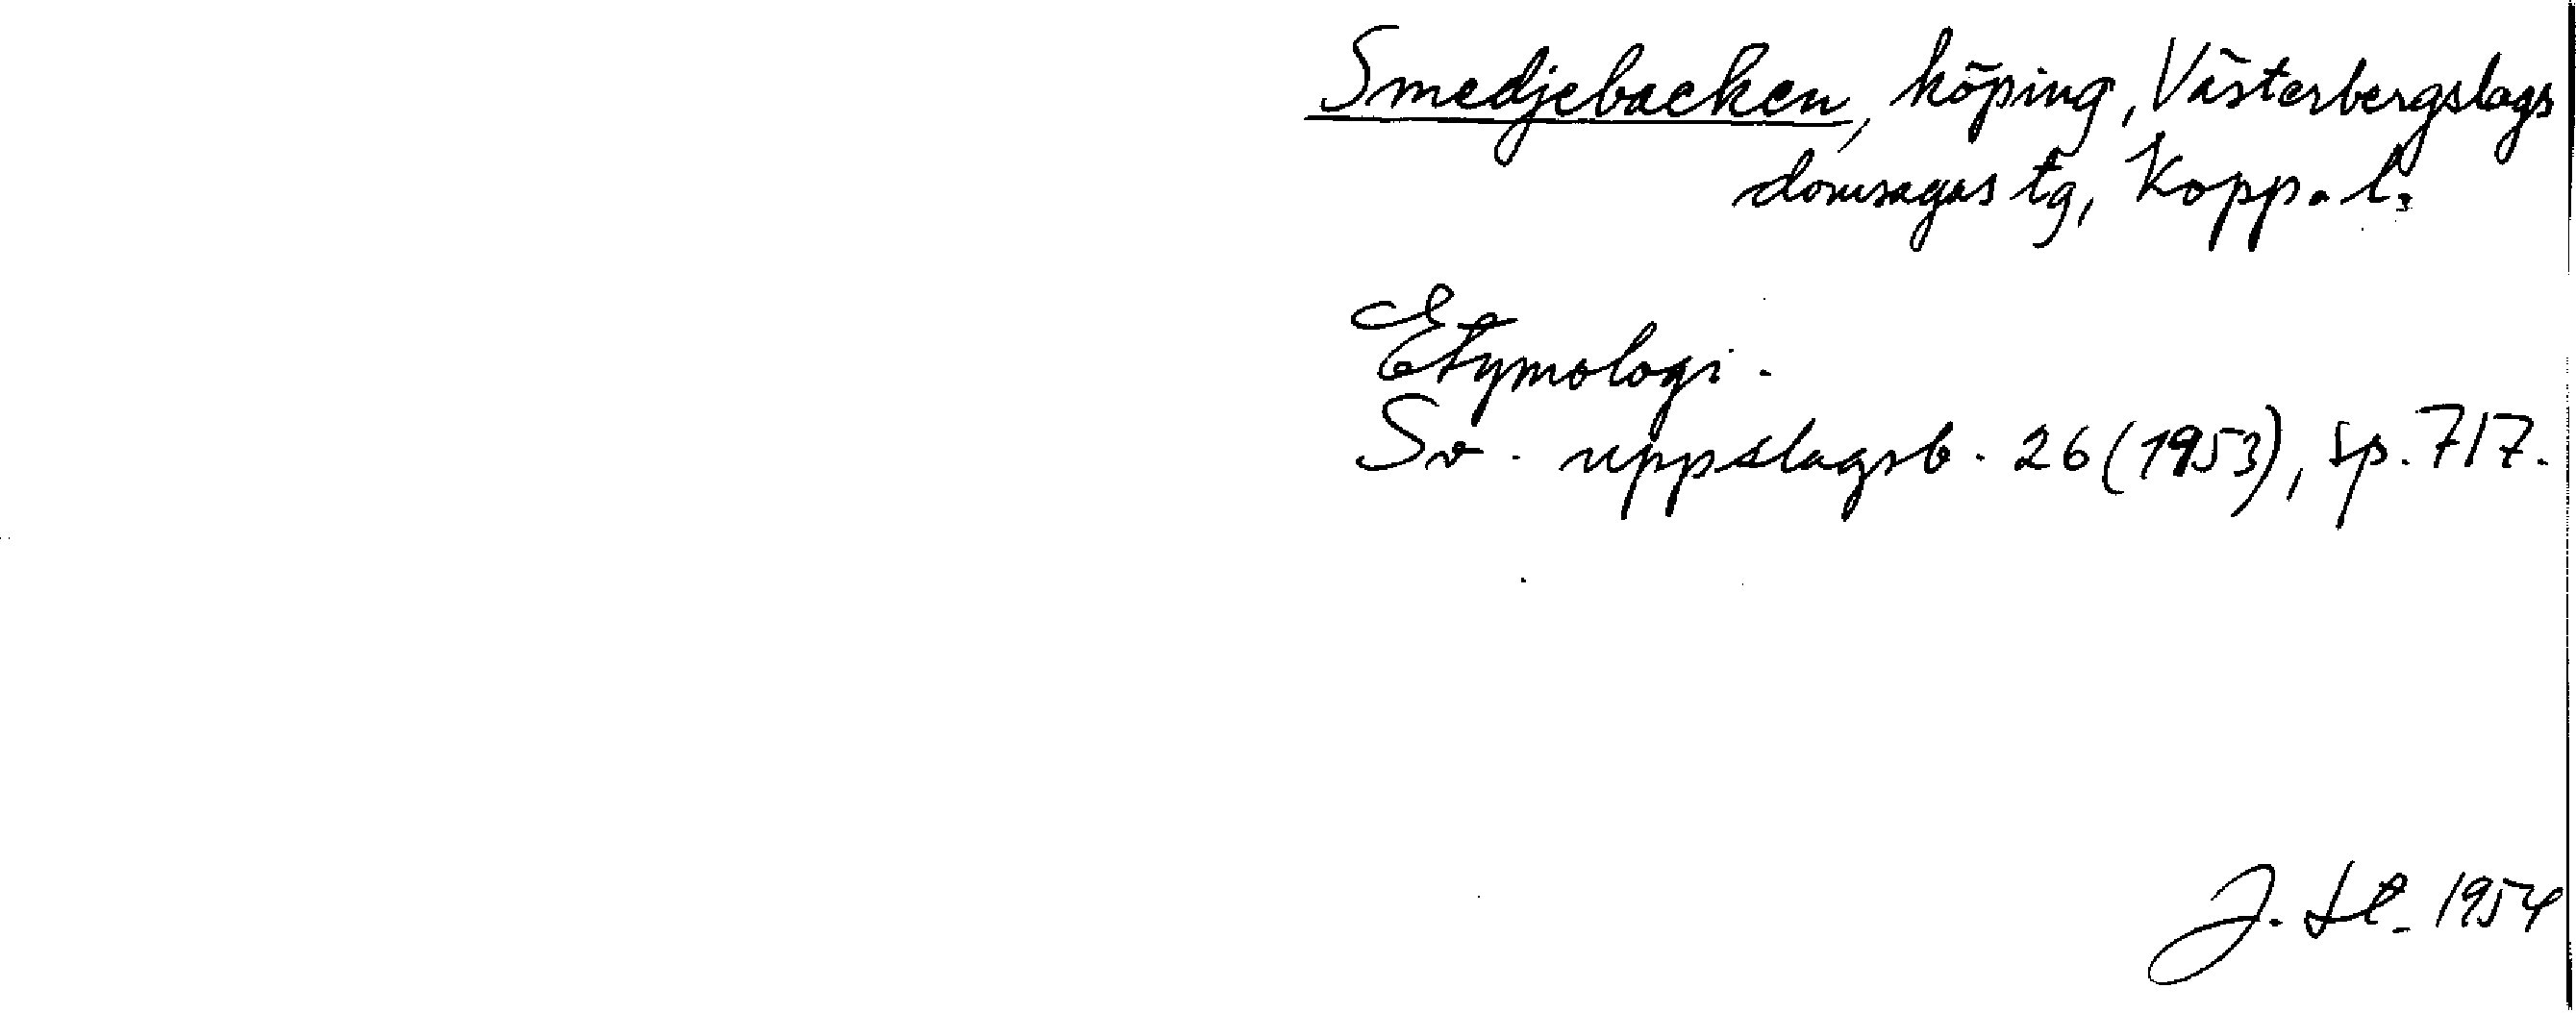 Smedjebacken, köping, Västerbergslags
domsagas tg, Kopp. l.
Etymologi.
Sv. uppslagsb. 26 (1953), sp. 717.
J. 1954